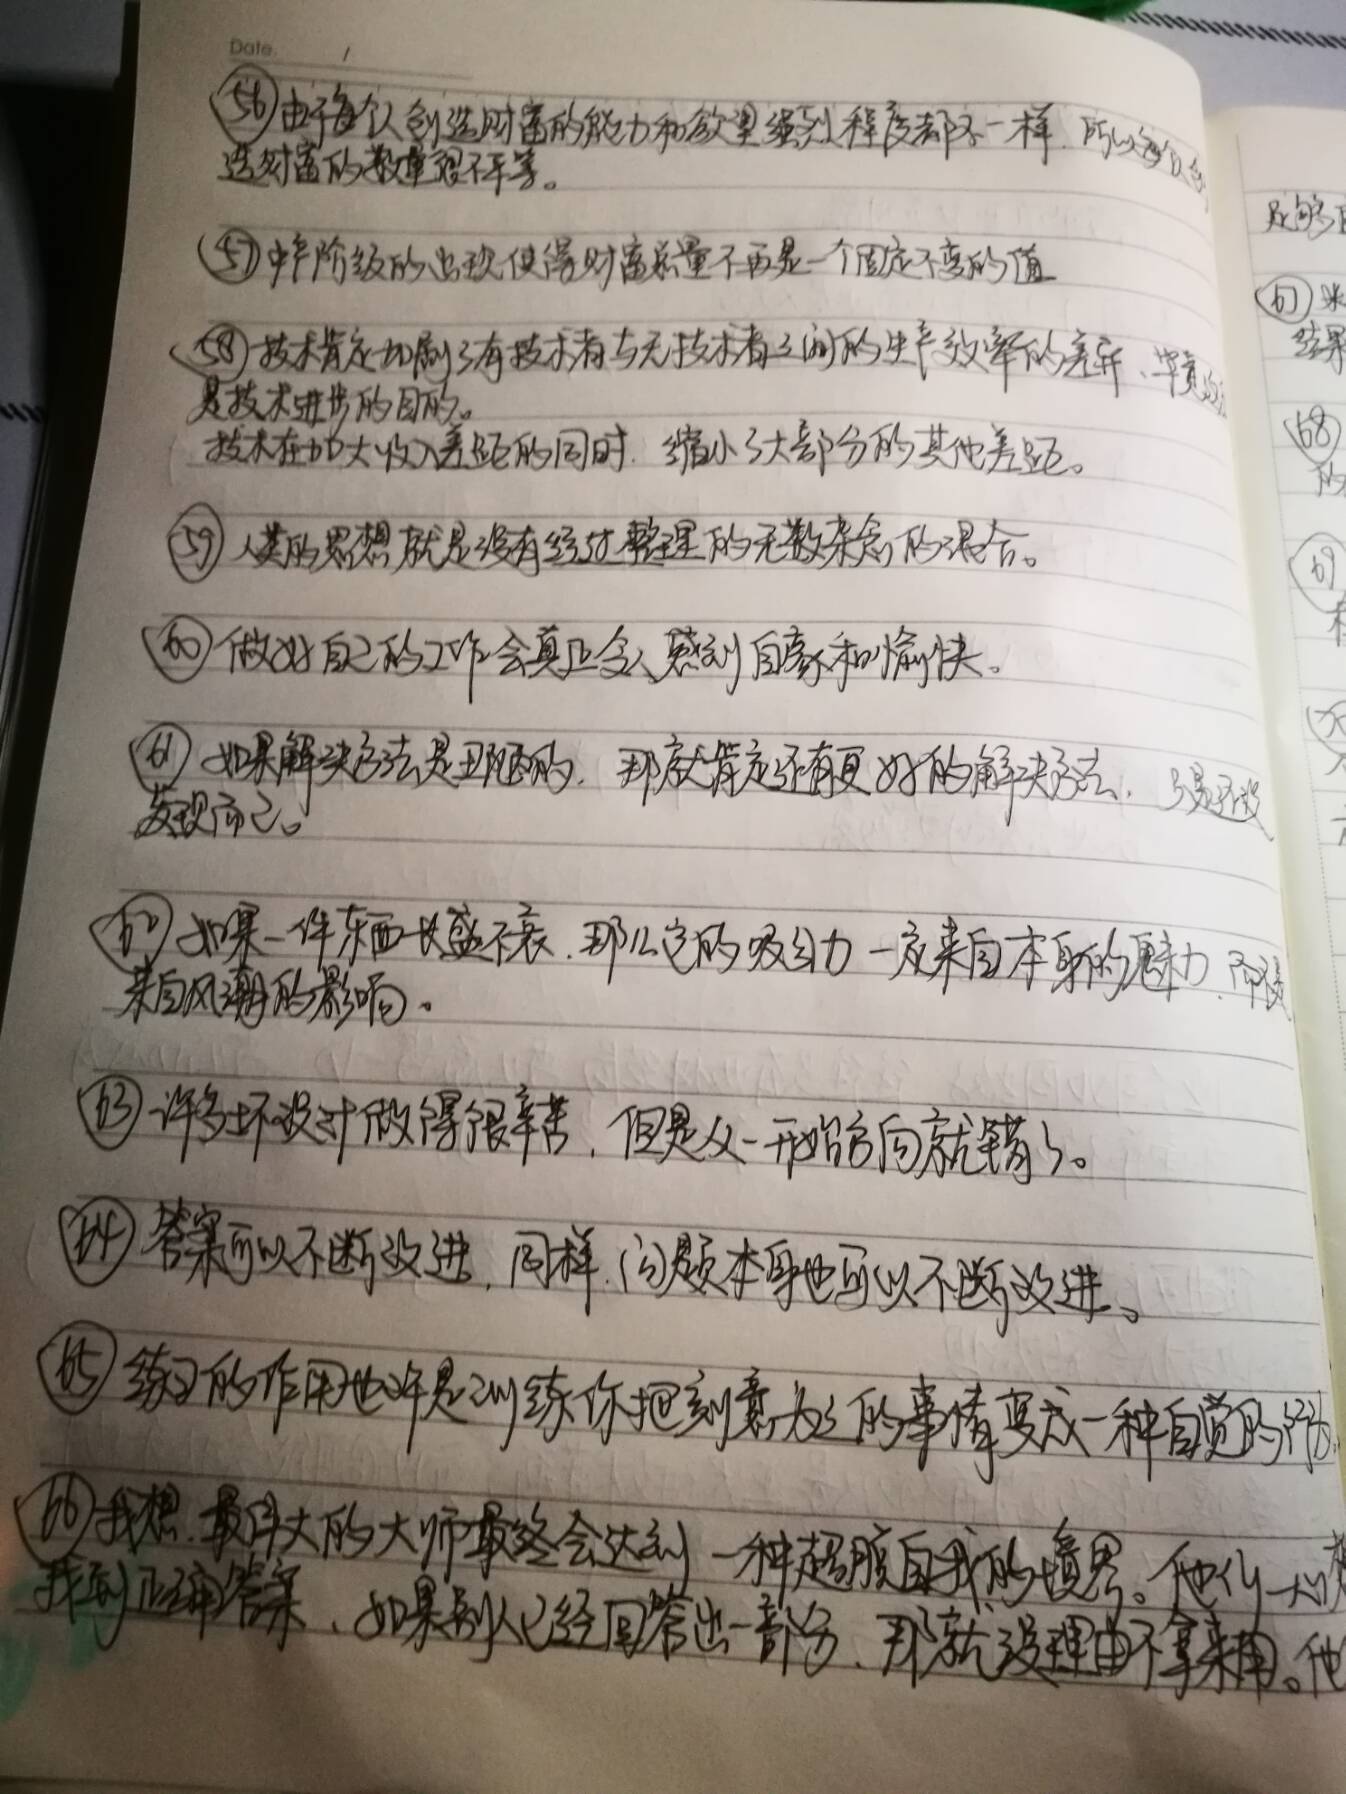 Date. /
56 由于每个人创造财富的能力和欲望强烈程度都不一样，所以每个人创
造财富的数量很不平等。
57 中产阶级的出现使得财富总量不再是一个固定不变的值
58 技术肯定加剧了有技术者与无技术者之间的生产效率的差异，毕竟
是技术进步的目的。
技术在加大收入差距的同时，缩小了大部分的其他差距。
59 人类的思想就是没有经过整理的无数杂念的混合。
60 做好自己的工作会真正令人感到自豪和愉快。
61 如果解决方法是丑陋的，那就肯定还有更好的解决方法，只是还没
发现而已。
62 如果一件东西长盛不衰，那么它的吸引力一定来自本身的魅力，而不是
来自风潮的影响。
63 许多坏设计做得很辛苦，但是从一开始方向就错了。
64 答案可以不断改进，同样，问题本身也可以不断改进。
65 练习的作用也许是训练你把刻意为之的事情变成一种自觉的行为。
66 我想，最伟大的大师最终会达到一种超脱自我的境界。他们一心想
找到正确答案，如果别人已经回答出一部分，那就没理由不拿来用。他
足够
67
结果
68
的
69